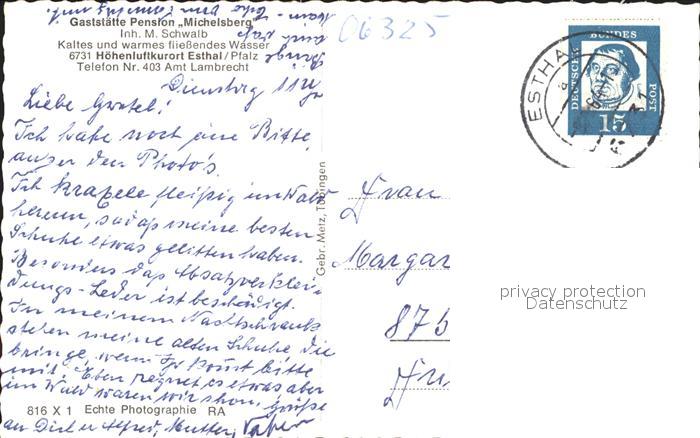 Gaststätte Pension „Michelsberg"
Inh. M. Schwalb
Kaltes und warmes fließendes Wasser
6731 Höhenluftkurort Esthal/Pfalz
Telefon Nr. 403 Amt Lambrecht
06325
Dienstag 11 Uhr
Liebe Gretel!
Ich habe noch eine Bitte,
außer den Photo's.
Ich kraxele fleißig im Wald
herum, sodaß meine besten
Schuhe etwas gelitten haben.
Besonders das Absatzverklei-
dungs-Leder ist beschädigt.
In meinem Nachtschrank
stehen meine alten Schuhe die
bringe, wenn Ihr kommt bitte
mit. Eben regnet es etwas aber
im Wald waren wir schon. Grüße
an Dich u. Alfred, Mutter, Vater
816 X 1 Echte Photographie RA
Gebr. Metz, Tübingen
DEUTSCHE BUNDES POST
15
ESTHAL
Frau
Margar
875
privacy protection
Datenschutz